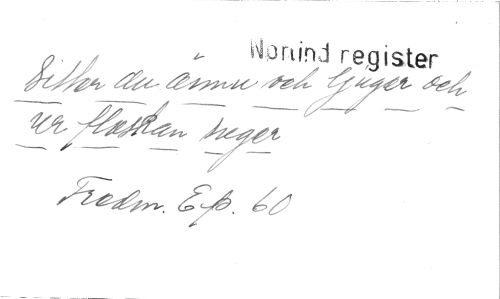 Nonind register
Sitter du ännu och ljuger och
ur flaskan suger
Fredm. Ep. 60